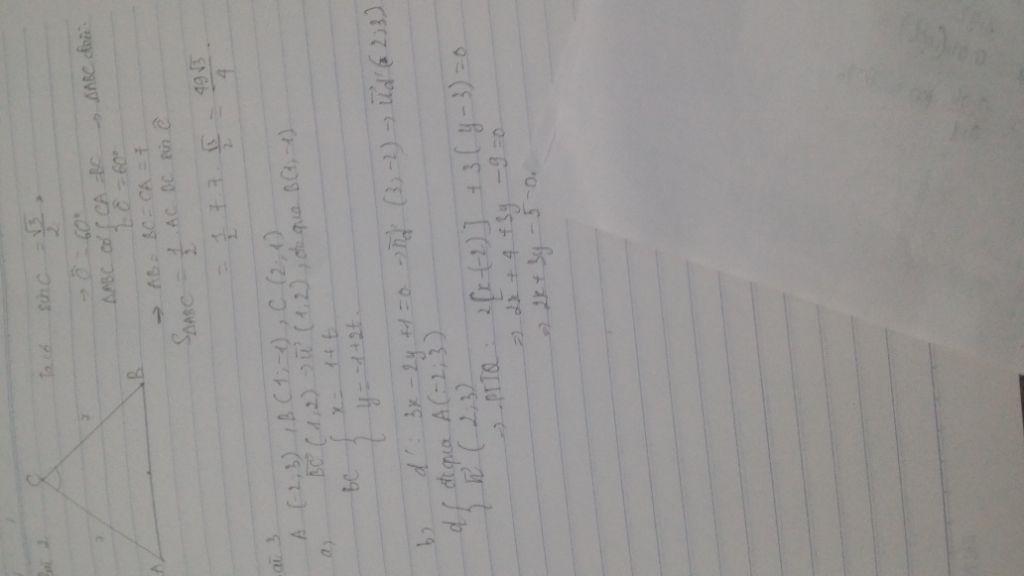 Bài 2.
C
A
B
7
7
Ta có sin C = √3/2
→ Ĉ = 60°
ΔABC có { CA = BC
Ĉ = 60° → ΔABC đều
→ AB = BC = CA = 7
SΔABC = 1/2 AC BC sin Ĉ
= 1/2 7 7 √3/2 = 49√3/4
Bài 3
A (-2,3), B (1; -1), C (2, 1)
a, BC (1,2) → u (1,2), đi qua B(1, -1)
BC { x = 1+t
y = -1+2t.
b, d': 3x - 2y +1 = 0 → n (3, -2) → u d' (2;3)
d { đi qua A(-2,3)
n (2,3)
→ PTTQ: 2[x-(-2)] + 3(y-3) = 0
⇒ 2x + 4 + 3y - 9 = 0
⇒ 2x + 3y - 5 = 0.